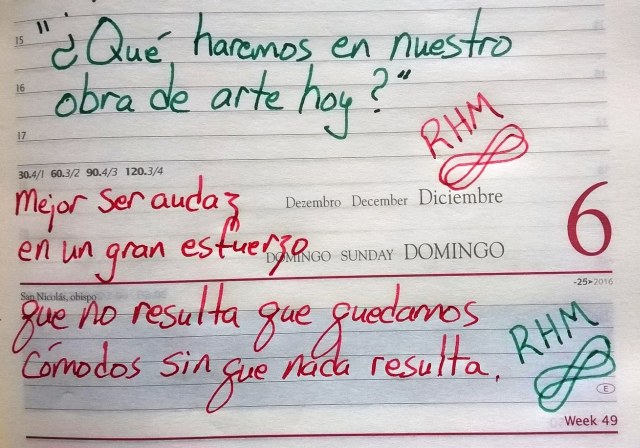 15
"¿Qué haremos en nuestro
16
obra de arte hoy?"
17
RHM
30.4/1 60.3/2 90.4/3 120.3/4
mejor ser audaz
Dezembro December Diciembre
6
en un gran esfuerzo
DOMINGO SUNDAY DOMINGO
-25>2016
San Nicolás, obispo
que no resulta que quedarnos
cómodos sin que nada resulta.
RHM
E
Week 49